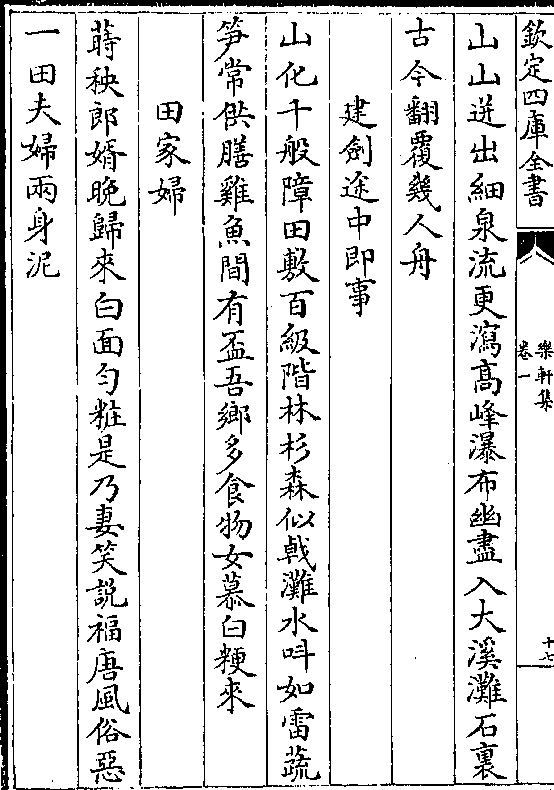 欽定四庫全書
樂軒集
卷一
十七
山山迸出細泉流更瀉高峰瀑布幽盡入大溪灘石裏
古今翻覆幾人舟
建劍途中即事
山化千般障田敷百級階林杉森似戟灘水呌如雷蔬
笋常供膳雞魚間有盃吾鄉多食物女慕白粳來
田家婦
蒔秧郎婿晚歸來白面匀粧是乃妻笑説福唐風俗惡
一田夫婦兩身泥